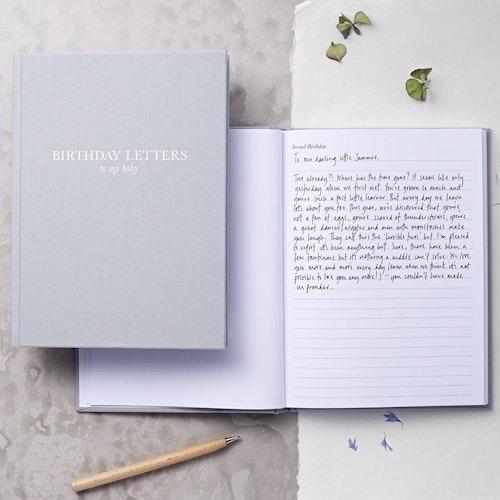 BIRTHDAY LETTERS
to my baby
Second Birthday
To my darling little Sammie,
Two already?! Where has the time gone? It seems like only
yesterday when we first met. You've grown so much and
you're such a fast little learner. But every day we learn
lots about you too. This year, we've discovered that you're
not a fan of eggs, you're scared of thunderstorms, you're
a great dancer/wiggler and men with moustaches make
you laugh. They call this the 'terrible twos' but I'm pleased
to report it's been anything but. Sure, there have been a
few tantrums but it's nothing a cuddle can't solve. We love
you more and more every day (even when we think it's not
possible to love you any more!) – you couldn't have made
us prouder...